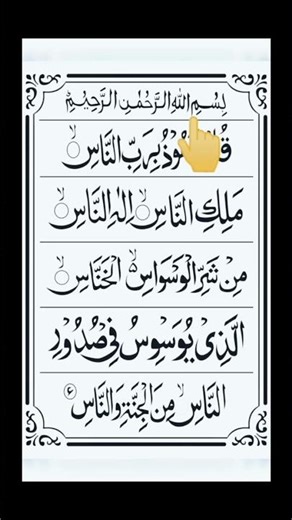 بِسْمِ اللهِ الرَّحْمٰنِ الرَّحِيْمِ
بِرَبِّ النَّاسِ ۙ
مَلِكِ النَّاسِ ۙ اِلٰهِ النَّاسِ ۙ
مِنْ شَرِّ الْوَسْوَاسِ ۙ الْخَنَّاسِ ۙ
الَّذِيْ يُوَسْوِسُ فِيْ صُدُوْرِ
النَّاسِ ۙ مِنَ الْجِنَّةِ وَالنَّاسِ ۶